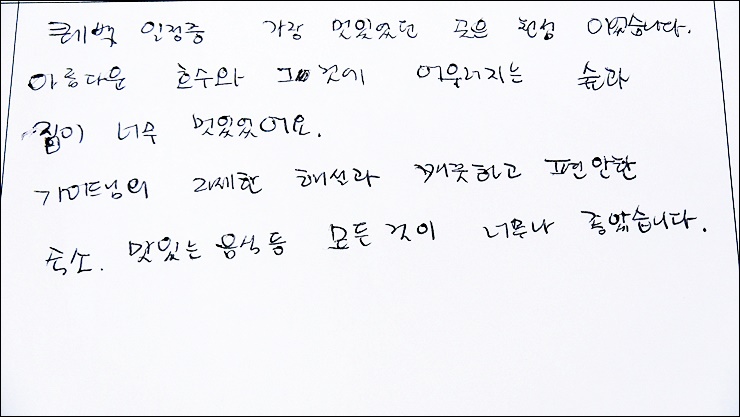 퀘백 일정중 가장 멋있었던 곳은 천섬 이였습니다.
아름다운 호수와 그 것에 어우러지는 숲과
집이 너무 멋있었어요.
가이드님의 자세한 해설과 깨끗하고 편안한
숙소. 맛있는 음식 등 모든 것이 너무나 좋았습니다.